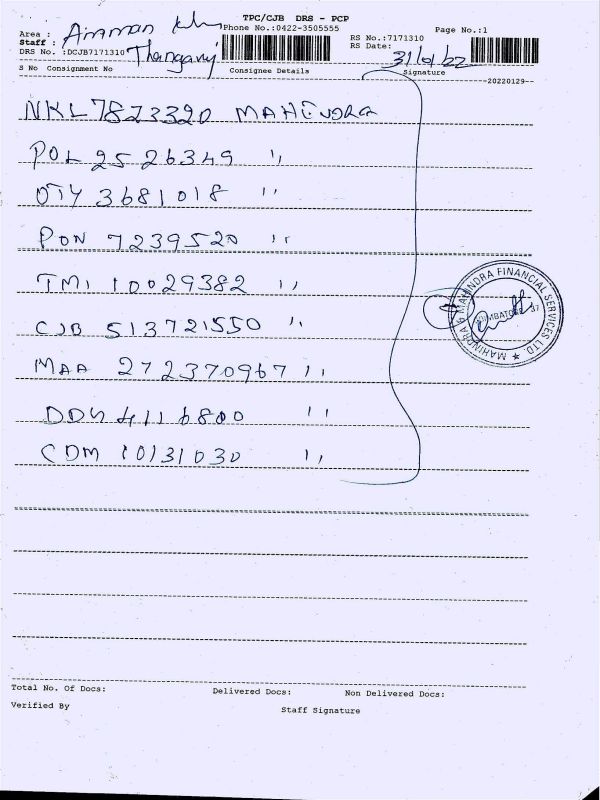 TPC/CJB DRS - PCP
Area : Amman
Phone No.:0422-3505555
RS No.:7171310
Page No.:1
Staff : Thangavj
RS Date: 31/01/22
DRS No. :DCJB7171310
S No Consignment No Consignee Details Signature
--20220129--
NKL 7823320 MAHENDRA
POL 2526349 ''
OTY 3681018 ''
PON 7239520 ''
TMI 10029382 ''
CJB 513721550 ''
MAA 272370967 ''
DDG 4116800 ''
CDM 10131030 ''
MAHINDRA & MAHINDRA FINANCIAL SERVICES LTD ★
Total No. Of Docs: Delivered Docs: Non Delivered Docs:
Verified By Staff Signature